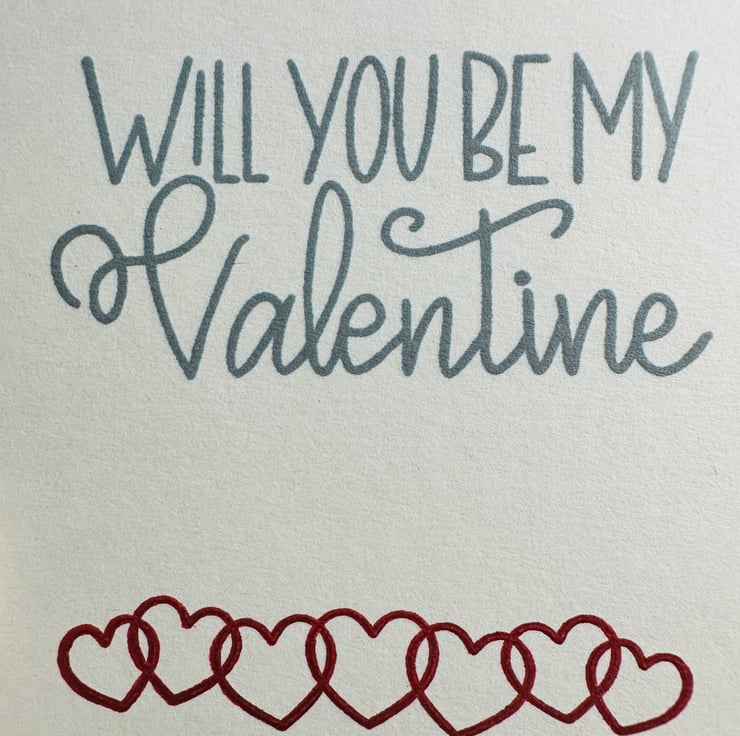 WILL YOU BE MY
Valentine